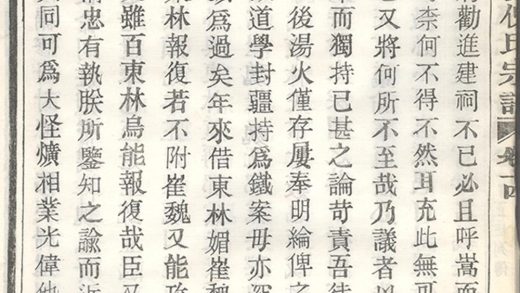 氏宗譜 卷十四
勸進建祠不已必且呼嵩而
奈何不得不然耳充此無可
又將何所不至哉乃議者以
而獨持已甚之論苛責吾徒
後湯火僅存屢奉明綸俾之
道學封疆持爲鐵案毋亦深
爲過矣年來借東林媚崔魏
東林報復若不附崔魏又能攻
雖百東林烏能報復哉臣又
忠有執朕所鑒知之諭而近
同可爲大怪爌相業光偉他